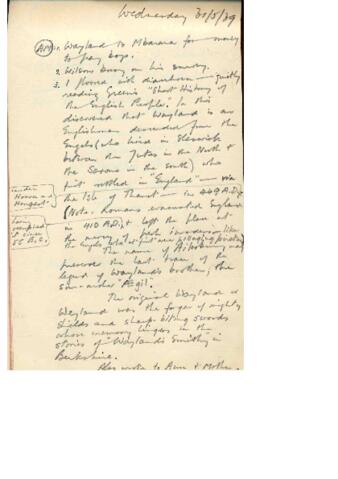 Wednesday 30/5/39
AM 1. Wayland to Mbarara for money
to pay boys.
2. Wilson busy on his survey.
3. I floored with diarrhoea – quietly
reading Green's "Short History of
the English People". In this
discovered that Wayland is an
Englishman descended from the
Engels (who lived in Sleswick
between the Jutes in the North &
the Saxons in the South) who
first settled in "England" – via
the Isle of Thanet – in 449 A.D.
(Note. Romans evacuated England
in 410 A.D. & left the place at
the mercy of fresh invaders like
the Engels
under
Horsa and
Hengest
Rom.
occupied
it since
55 B.C.
The name of
preserve the last trace of the
legend of Wayland's brother, the
sun-archer Ægil.
The original Wayland or
Weyland was the forger of mighty
shields and sharp-biting swords
whose memory lingers in the
stories of "Wayland's Smithy" in
Berkshire.
Also wrote to Ann & Mother.